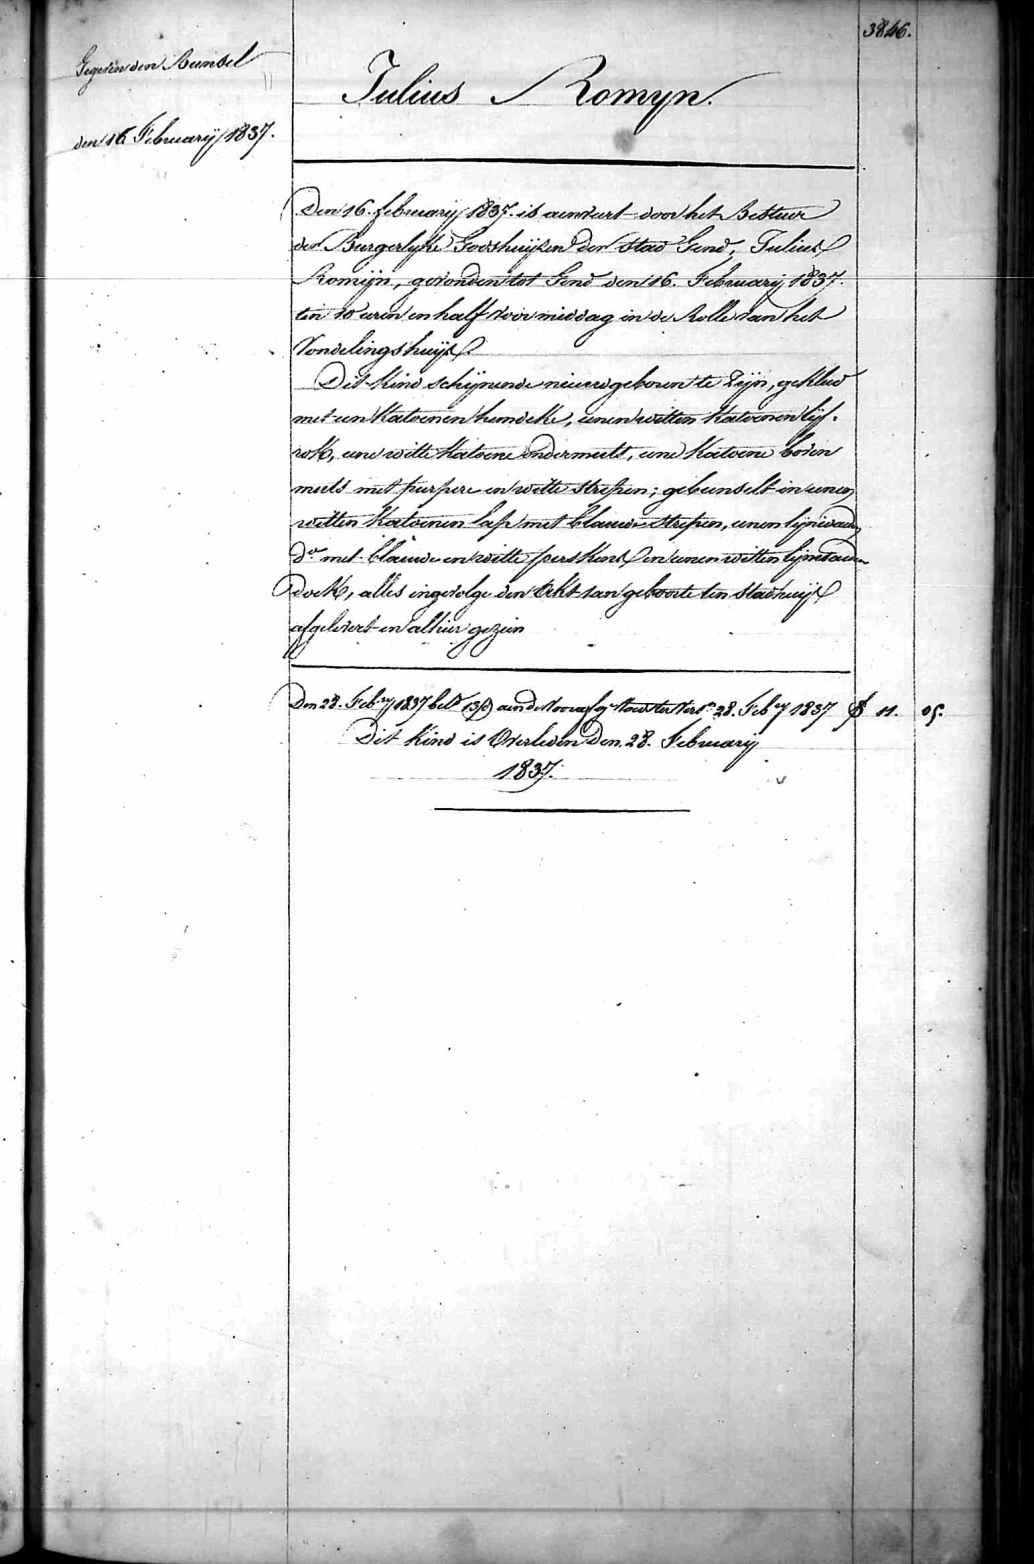 3846.
Gegeven den Bundel
den 16 Februarij 1837.
Julius Romyn.
Den 16. februarij 1837. is aenveert door het Bestuer
der Burgerlyke Godshuijzen der stad Gend, Julius
Romijn, gevonden tot Gend den 16. Februarij 1837.
ten 10 uren en half voor middag in de Rolle van het
Vondelingshuijs.
Dit kind schijnende nieuwgeboren te Zijn, gekleed
met een katoenen hemdeke, eenen witten katoenen lyf-
rok, eene witte katoene ondermuts, eene katoene boven
muts met purpere en witte strepen; gebunselt in eenen
witten katoenen lap met blauwe strepen, eenen lijnwaden
do met blauwe en witte perskens en eenen witten lijnwaden
doek, alles ingevolge den Akt van geboorte ten stadhuijs
afgelevert en alhier gezien
Den 28. Febry 1837 bet 13 aen de voorz 28. Febry 1837 11. 05.
Dit kind is Overleden Den 28. Februarij
1837.